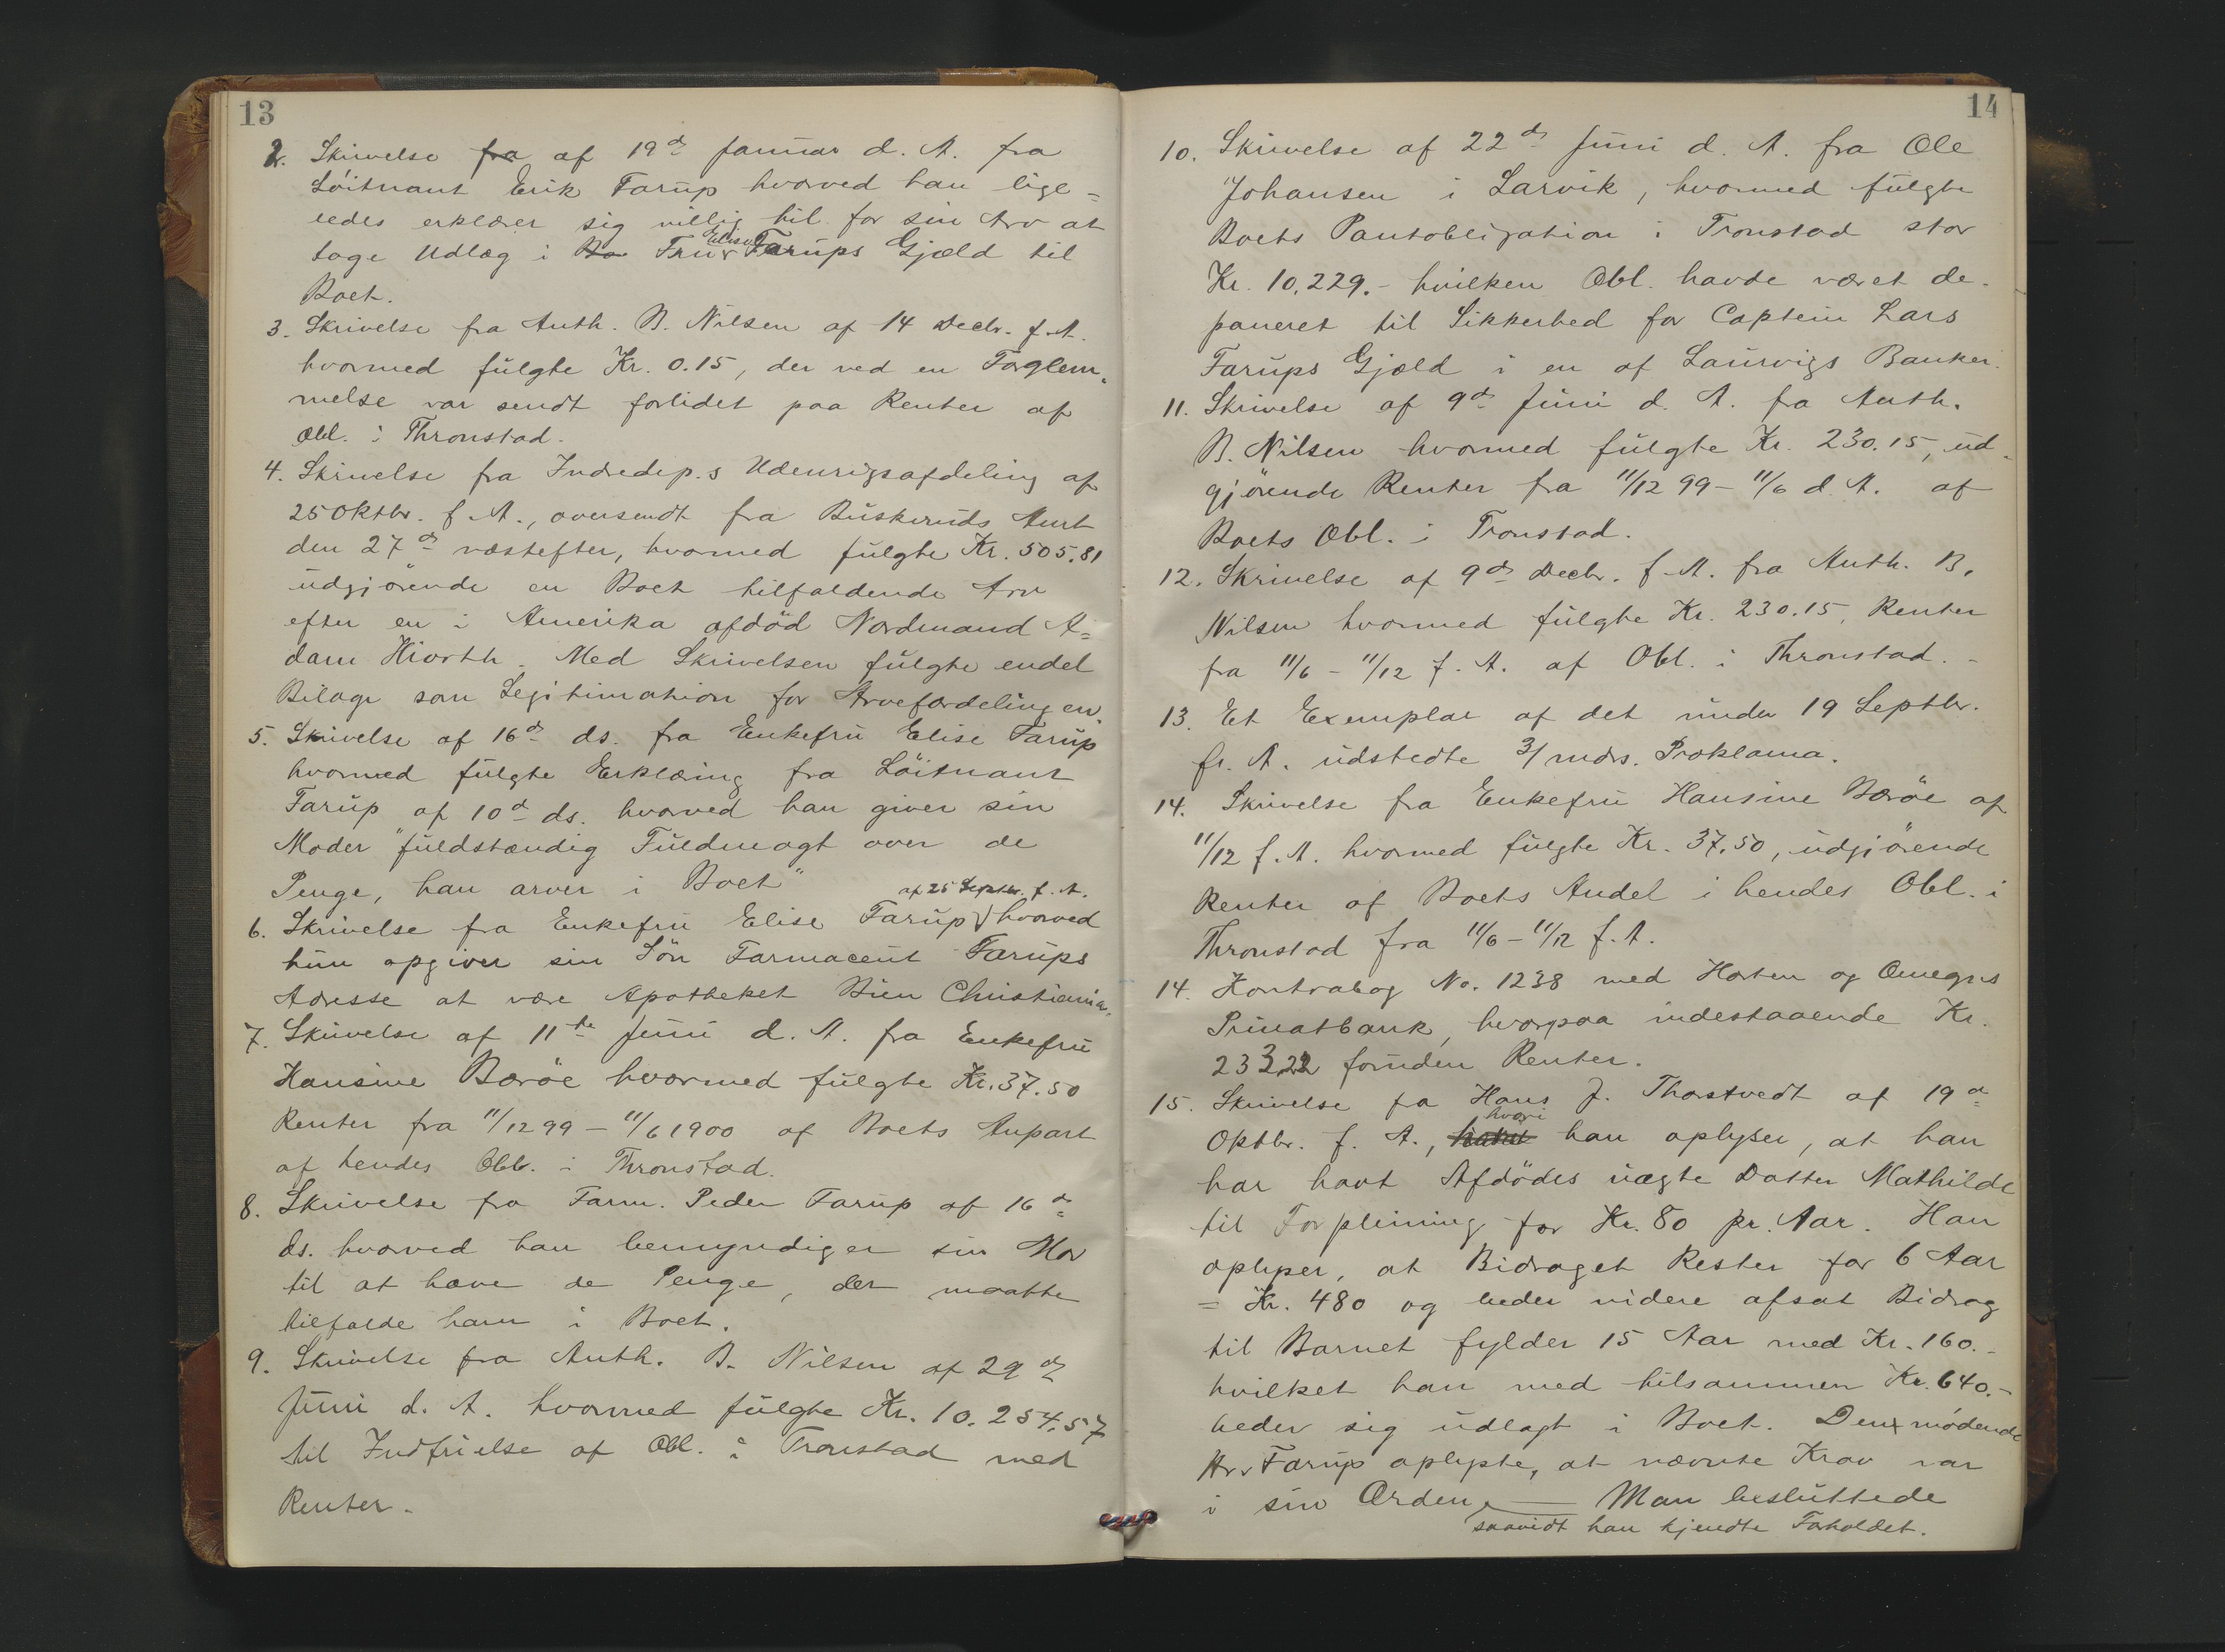 13
2. Skrivelse fra af 19d Januar d. A. fra
Löitnant Erik Farup hvorved han lige=
ledes erklærer sig villig til for sin Arv at
tage Udlæg i Bo Fru Elise Farups Gjæld til
Boet.
3. Skrivelse fra Auth. B. Nilsen af 14 Decbr. f. A.
hvormed fulgte Kr. 0.15, der ved en Forglem-
melse var sendt forlidet paa Renter af
Obl. i Thronstad.
4. Skrivelse fra Indredep.s Udenrigsafdeling af
25 Oktbr. f. A., oversendt fra Buskeruds Amt
den 27d næstefter, hvormed fulgte Kr. 505.81
udgjörende en Boet tilfaldende Arv
efter en i Amerika afdöd Nordmand A=
dam Hiorth. Med Skrivelsen fulgte endel
Bilage som Legitimation for Arvefordelingen.
5. Skrivelse af 16d ds. fra Enkefru Elise Farup
hvormed fulgte Erklæring fra Löitnant
Farup af 10d ds. hvorved han giver sin
Moder "fuldstændig Fuldmagt over de
Penge, han arver i Boet"
af 25 Septbr. f. A.
6. Skrivelse fra Enkefru Elise Farup hvorved
hun opgiver sin Sön Farmaceut Farups
Adresse at være Apotheket Bien Christiania.
7. Skrivelse af 11te Juni d. A. fra Enkefru
Hansine Børöe hvormed fulgte Kr. 37.50
Renter fra 11/12 99 – 11/6 1900 af Boets Anpart
af hendes Obl. i Thronstad.
8. Skrivelse fra Farm. Peder Farup af 16d
ds. hvorved han bemyndiger sin Mor
til at hæve de Penge, der maatte
tilfalde ham i Boet.
9. Skrivelse fra Auth. B. Nilsen af 29d
Juni d. A. hvormed fulgte Kr. 10.254,57
til Indfrielse af Obl. i Tronstad med
Renter.
14
10. Skrivelse af 22d Juni d. A. fra Ole
Johansen i Larvik, hvormed fulgte
Boets Pantobligation i Tronstad stor
Kr. 10.229.- hvilken Obl. havde været de-
poneret til Sikkerhed for Captein Lars
Farups Gjæld i en af Laurvigs Banker.
11. Skrivelse af 9d Juni d. A. fra Auth.
B. Nilsen hvormed fulgte Kr. 230.15, ud-
gjörende Renter fra 11/12 99 – 11/6 d. A. af
Boets Obl. i Tronstad.
12. Skrivelse af 9d Decbr. f. A. fra Auth. B.
Nilsen hvormed fulgte Kr. 230.15, Renter
fra 11/6 – 11/12 f. A. af Obl. i Thronstad. -
13. Et Exemplar af det under 19 Septbr.
fr. A. udstedte 3/ mdrs. Proklama.
14. Skrivelse fra Enkefru Hansine Børöe af
11/12 f. A. hvormed fulgte Kr. 37,50, udgjörende
Renter af Boets Andel i hendes Obl. i
Thronstad fra 11/6 – 11/12 f. A.
14. Kontrabog No. 1238 med Horten og Omegns
Privatbank, hvorpaa indestaaende Kr.
233,22 foruden Renter.
15. Skrivelse fra Hans J. Thorstvedt af 19d
Oktbr. f. A., hvori han oplyser, at han
har havt Afdödes uægte Datter Mathilde
til Forpleining for Kr. 80 pr. Aar. Han
oplyser, at Bidraget Rester for 6 Aar
= Kr. 480 og beder videre afsat Bidrag
til Barnet fylder 15 Aar med Kr. 160.-
hvilket han med tilsammen Kr. 640.-
beder sig udlagt i Boet. Den mödende
Hr. Farup oplyste, at nævnte Krav var
i sin Orden, — Man besluttede
saavidt han kjendte Forholdet.